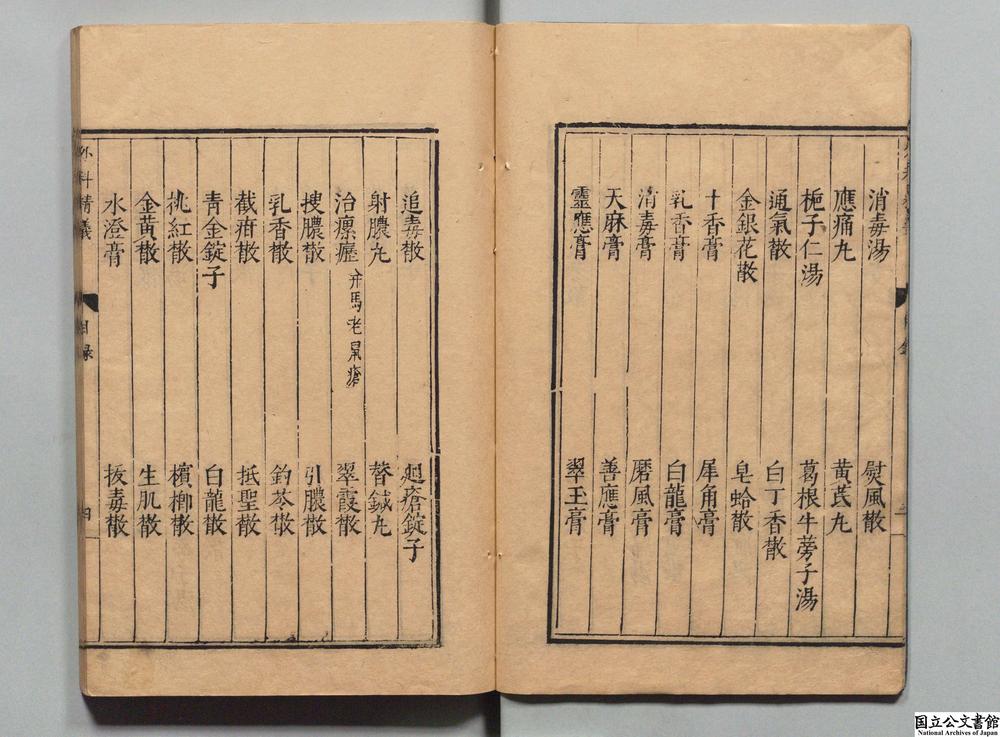 消毒湯　熨風散
應痛丸　黄芪丸
梔子仁湯　葛根牛蒡子湯
通氣散　白丁香散
金銀花散　皂蛤散
十香膏　犀角膏
乳香膏　白龍膏
消毒膏　磨風膏
天麻膏　善應膏
靈應膏　翠玉膏
追毒散　廻瘡錠子
射膿丸　替鍼丸
治瘰癧　馬老鼠瘡　翠霞散
搜膿散　引膿散
乳香散　鈎苓散
截疳散　抵聖散
青金錠子　白龍散
桃紅散　檳榔散
金黄散　生肌散
水澄膏　拔毒散
外科精義　目録　四
国立公文書館
National Archives of Japan